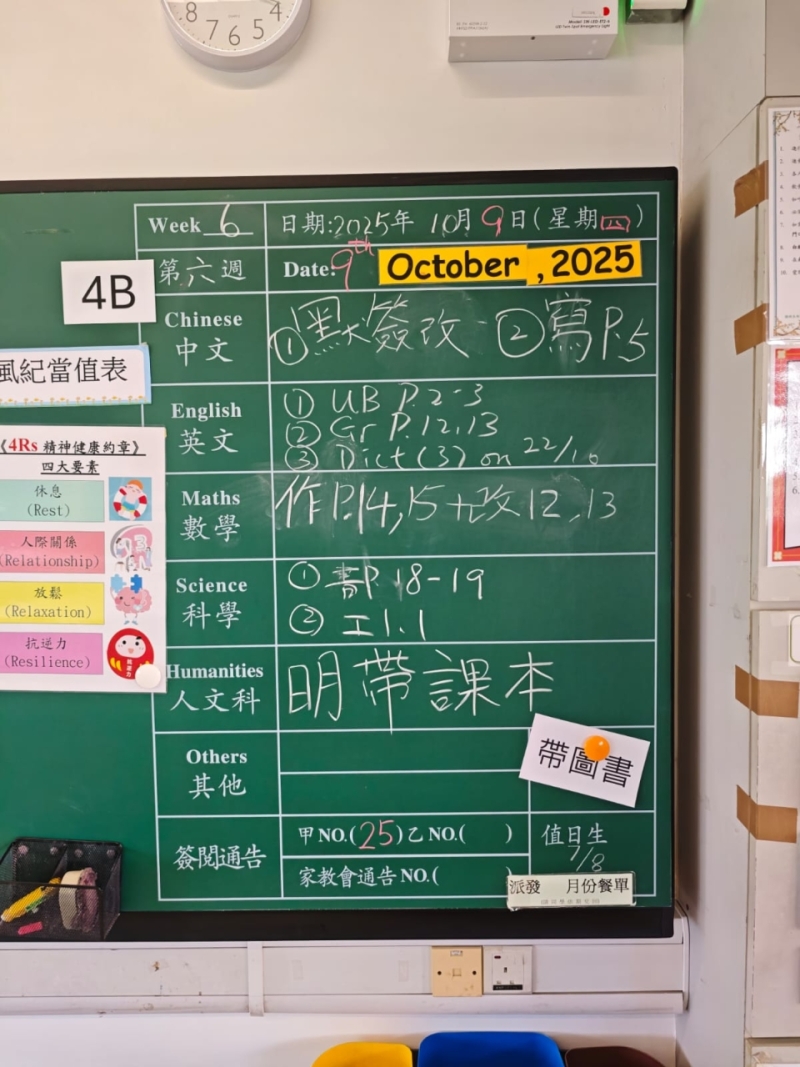 8 7 6 5 4
Week 6
日期:2025年 10月 9日(星期四)
第六週
Date: 9th October , 2025
4B
Chinese
中文
①默簽改 ②寫P.5
風紀當值表
English
英文
① UB P.2-3
② Gr P.12,13
③ Dict(3) on 22/10
《4Rs 精神健康約章》
四大要素
休息
(Rest)
人際關係
(Relationship)
放鬆
(Relaxation)
抗逆力
(Resilience)
Maths
數學
作P.14,15+改12,13
Science
科學
① 書P.18-19
② 工1.1
Humanities
人文科
明帶課本
Others
其他
帶圖書
簽閱通告
甲NO.(25)乙NO.( )
家教會通告NO.( )
值日生
7/8
派發 月份餐單